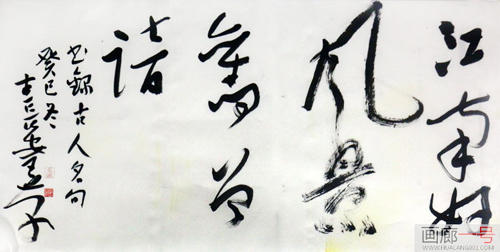 江南好
风景
舊曾
諳
书錄古人名句
癸巳冬
画廊一号
WWW.HUALANG001.COM